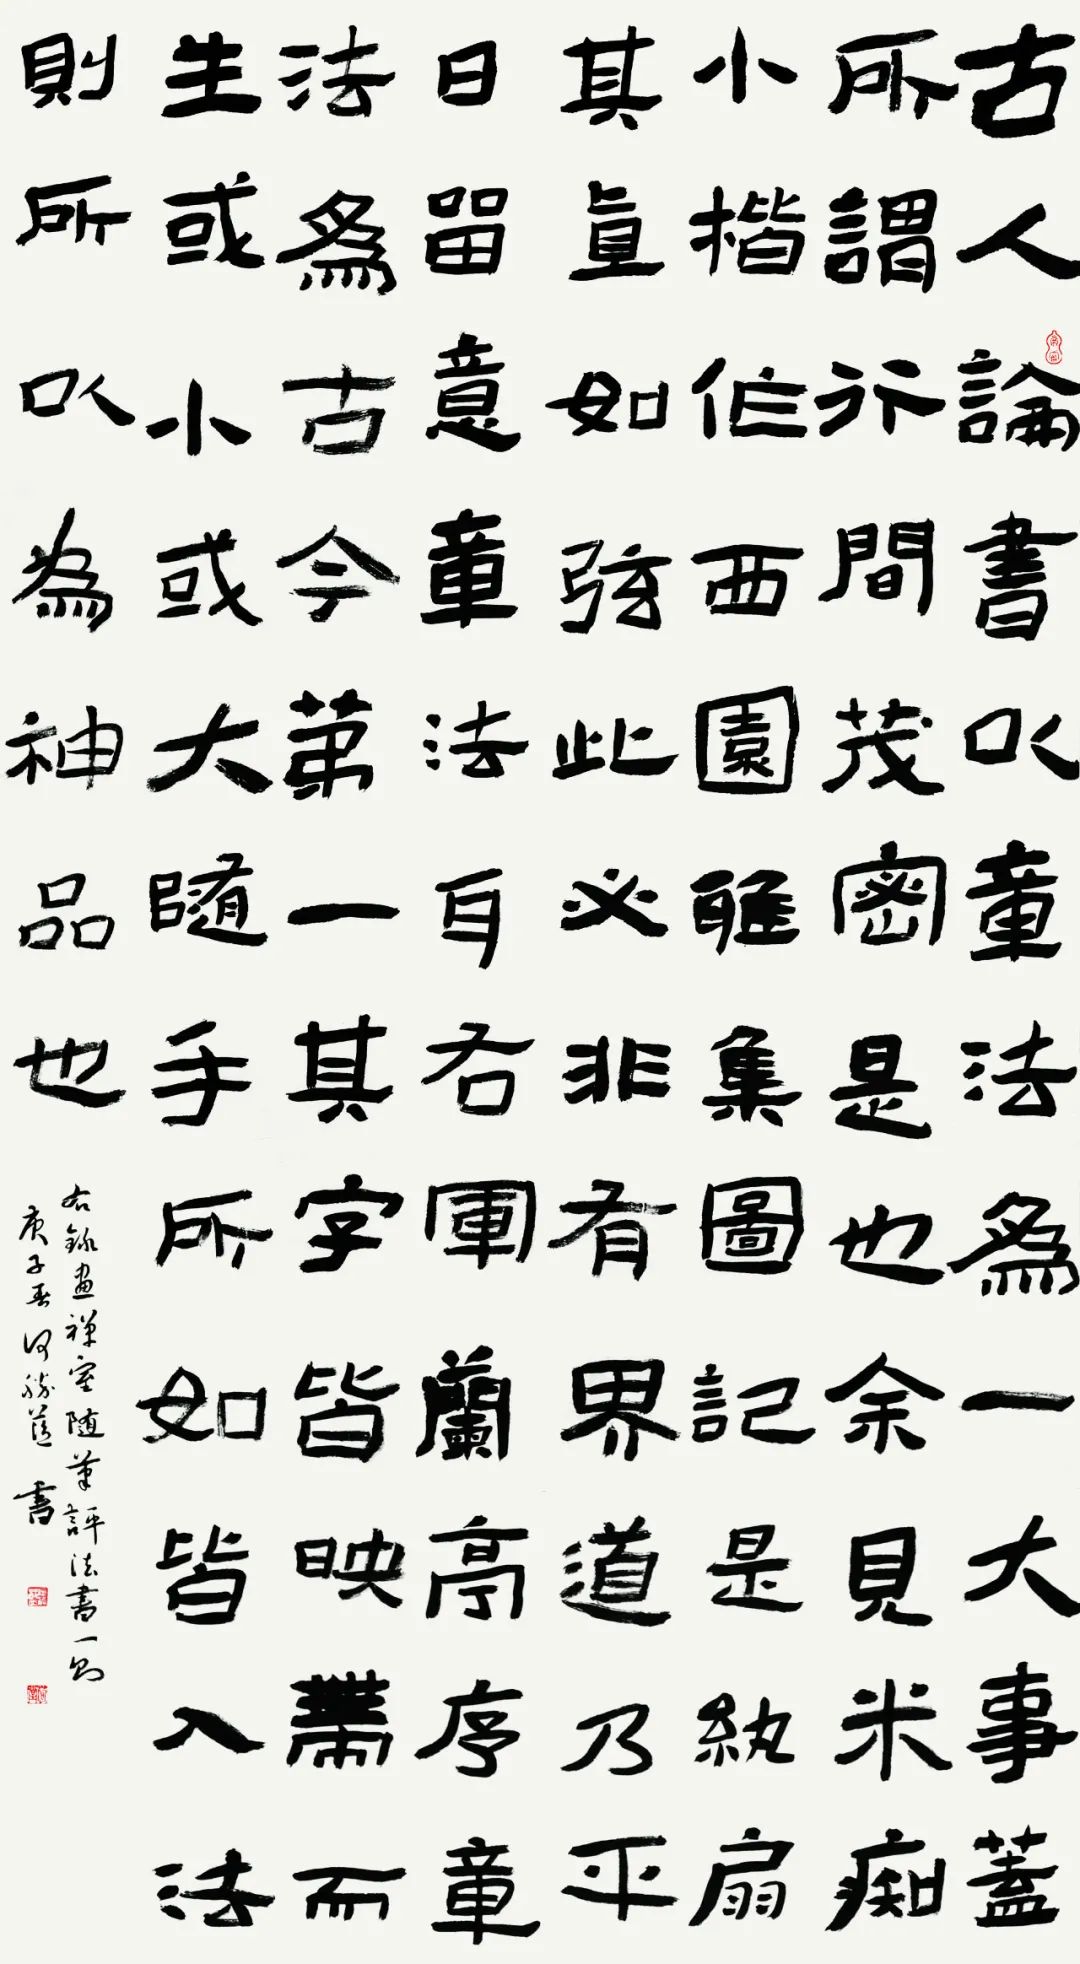 古人論書以章法為一大事蓋
所謂行間茂密是也余見米痴
小楷作西園雅集圖記是紈扇
其直如弦此必非有界道乃平
日留意章法耳右軍蘭亭序章
法為古今第一其字皆映帶而
生或小或大隨手所如皆入法
則所以為神品也
右錄畫禪室随筆評法書一則
庚子春何書